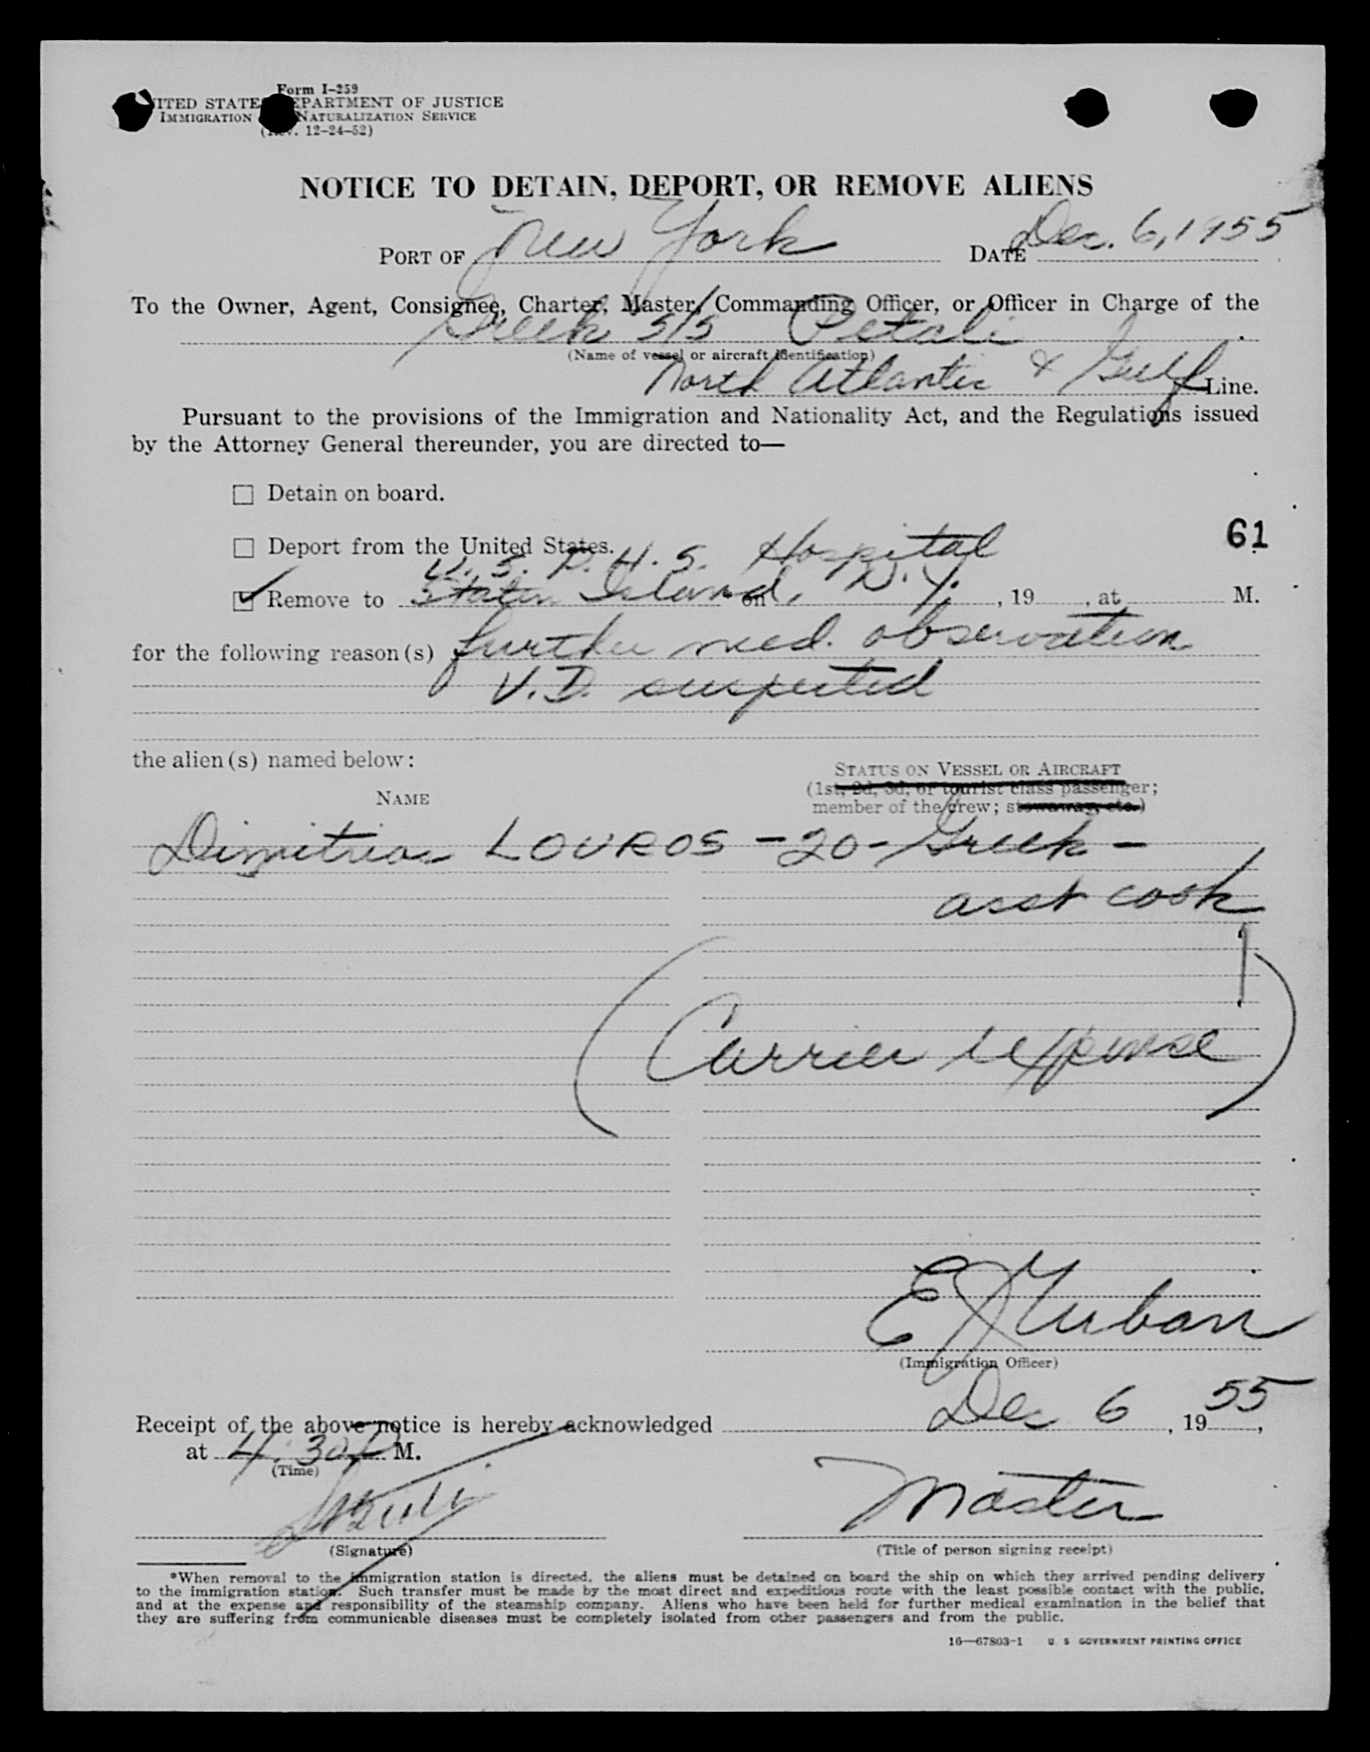 Form I-259
UNITED STATES DEPARTMENT OF JUSTICE
IMMIGRATION NATURALIZATION SERVICE
(Rev. 12-24-52)
NOTICE TO DETAIN, DEPORT, OR REMOVE ALIENS
PORT OF New York DATE Dec. 6, 1955
To the Owner, Agent, Consignee, Charter, Master, Commanding Officer, or Officer in Charge of the
Greek S/S Petali
(Name of vessel or aircraft identification)
North Atlantic & Gulf Line.
Pursuant to the provisions of the Immigration and Nationality Act, and the Regulations issued
by the Attorney General thereunder, you are directed to—
☐ Detain on board.
61
☐ Deport from the United States.
U. S. P. H. S. Hospital
☑ Remove to Staten Island, N.Y. on , 19 , at M.
for the following reason(s) further med. observation
V.D. suspected
the alien(s) named below:
STATUS ON VESSEL OR AIRCRAFT
(1st, 2d, 3d, or tourist class passenger;
NAME
member of the crew; stowaway, etc.)
Dimitrios LOUROS - 20 - Greek -
asst cook
(Carrier expense)
(Immigration Officer)
Receipt of the above notice is hereby acknowledged Dec 6, 1955,
at 4:30 P M.
(Time)
Master
(Signature) (Title of person signing receipt)
*When removal to the immigration station is directed, the aliens must be detained on board the ship on which they arrived pending delivery
to the immigration station. Such transfer must be made by the most direct and expeditious route with the least possible contact with the public,
and at the expense and responsibility of the steamship company. Aliens who have been held for further medical examination in the belief that
they are suffering from communicable diseases must be completely isolated from other passengers and from the public.
16—67803-1 U. S. GOVERNMENT PRINTING OFFICE